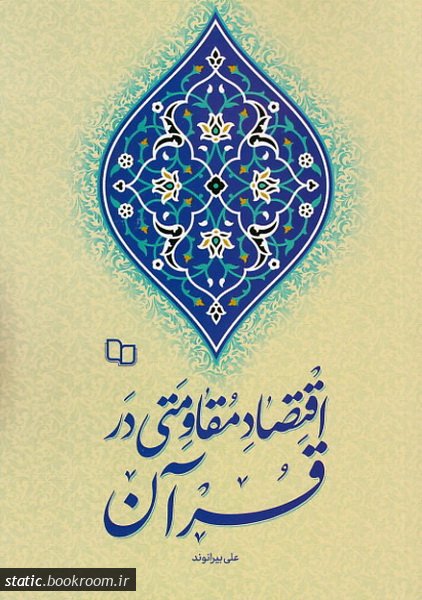 اقتصادِ مُقاوِمَتی دَر
قُرآن
علی بیرانوند
static.bookroom.ir